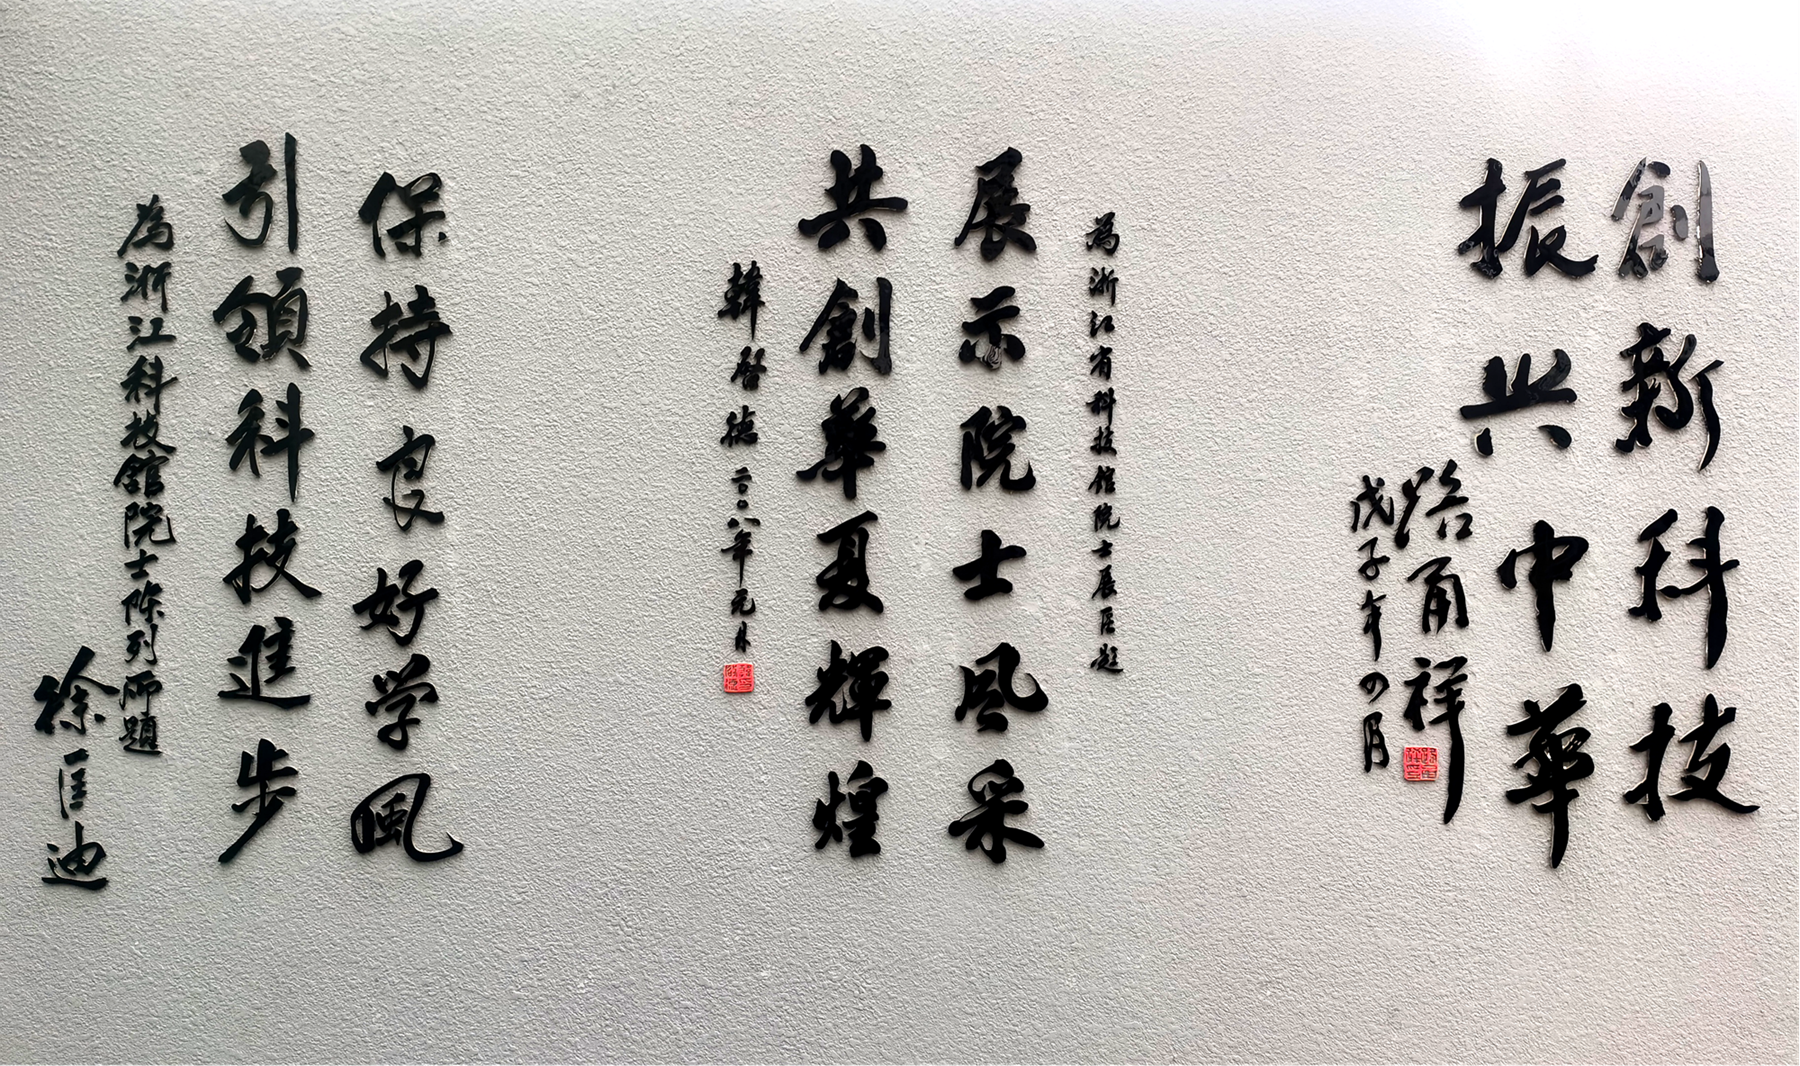 創新科技
振兴中華
路甬祥
戊子年四月
為浙江省科技馆院士展區題
展示院士风采
共創華夏輝煌
韓啓德
二〇〇八年元月
保持良好学風
引領科技進步
為浙江科技館院士陈列而題
徐匡迪